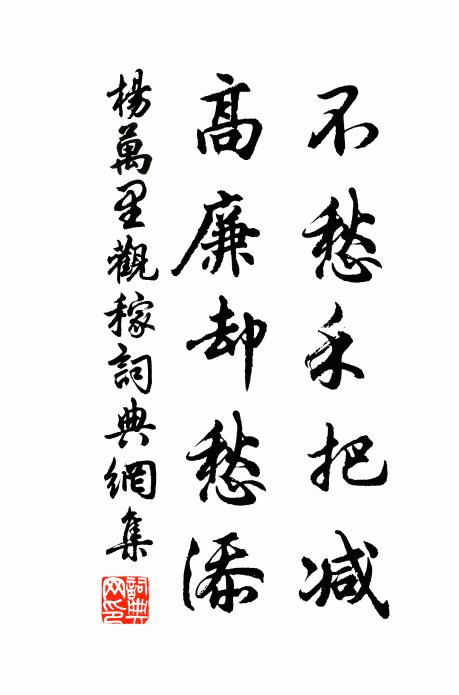 不愁禾把減
高廉却愁添
楊萬里觀稼詞典網集
詞典網印